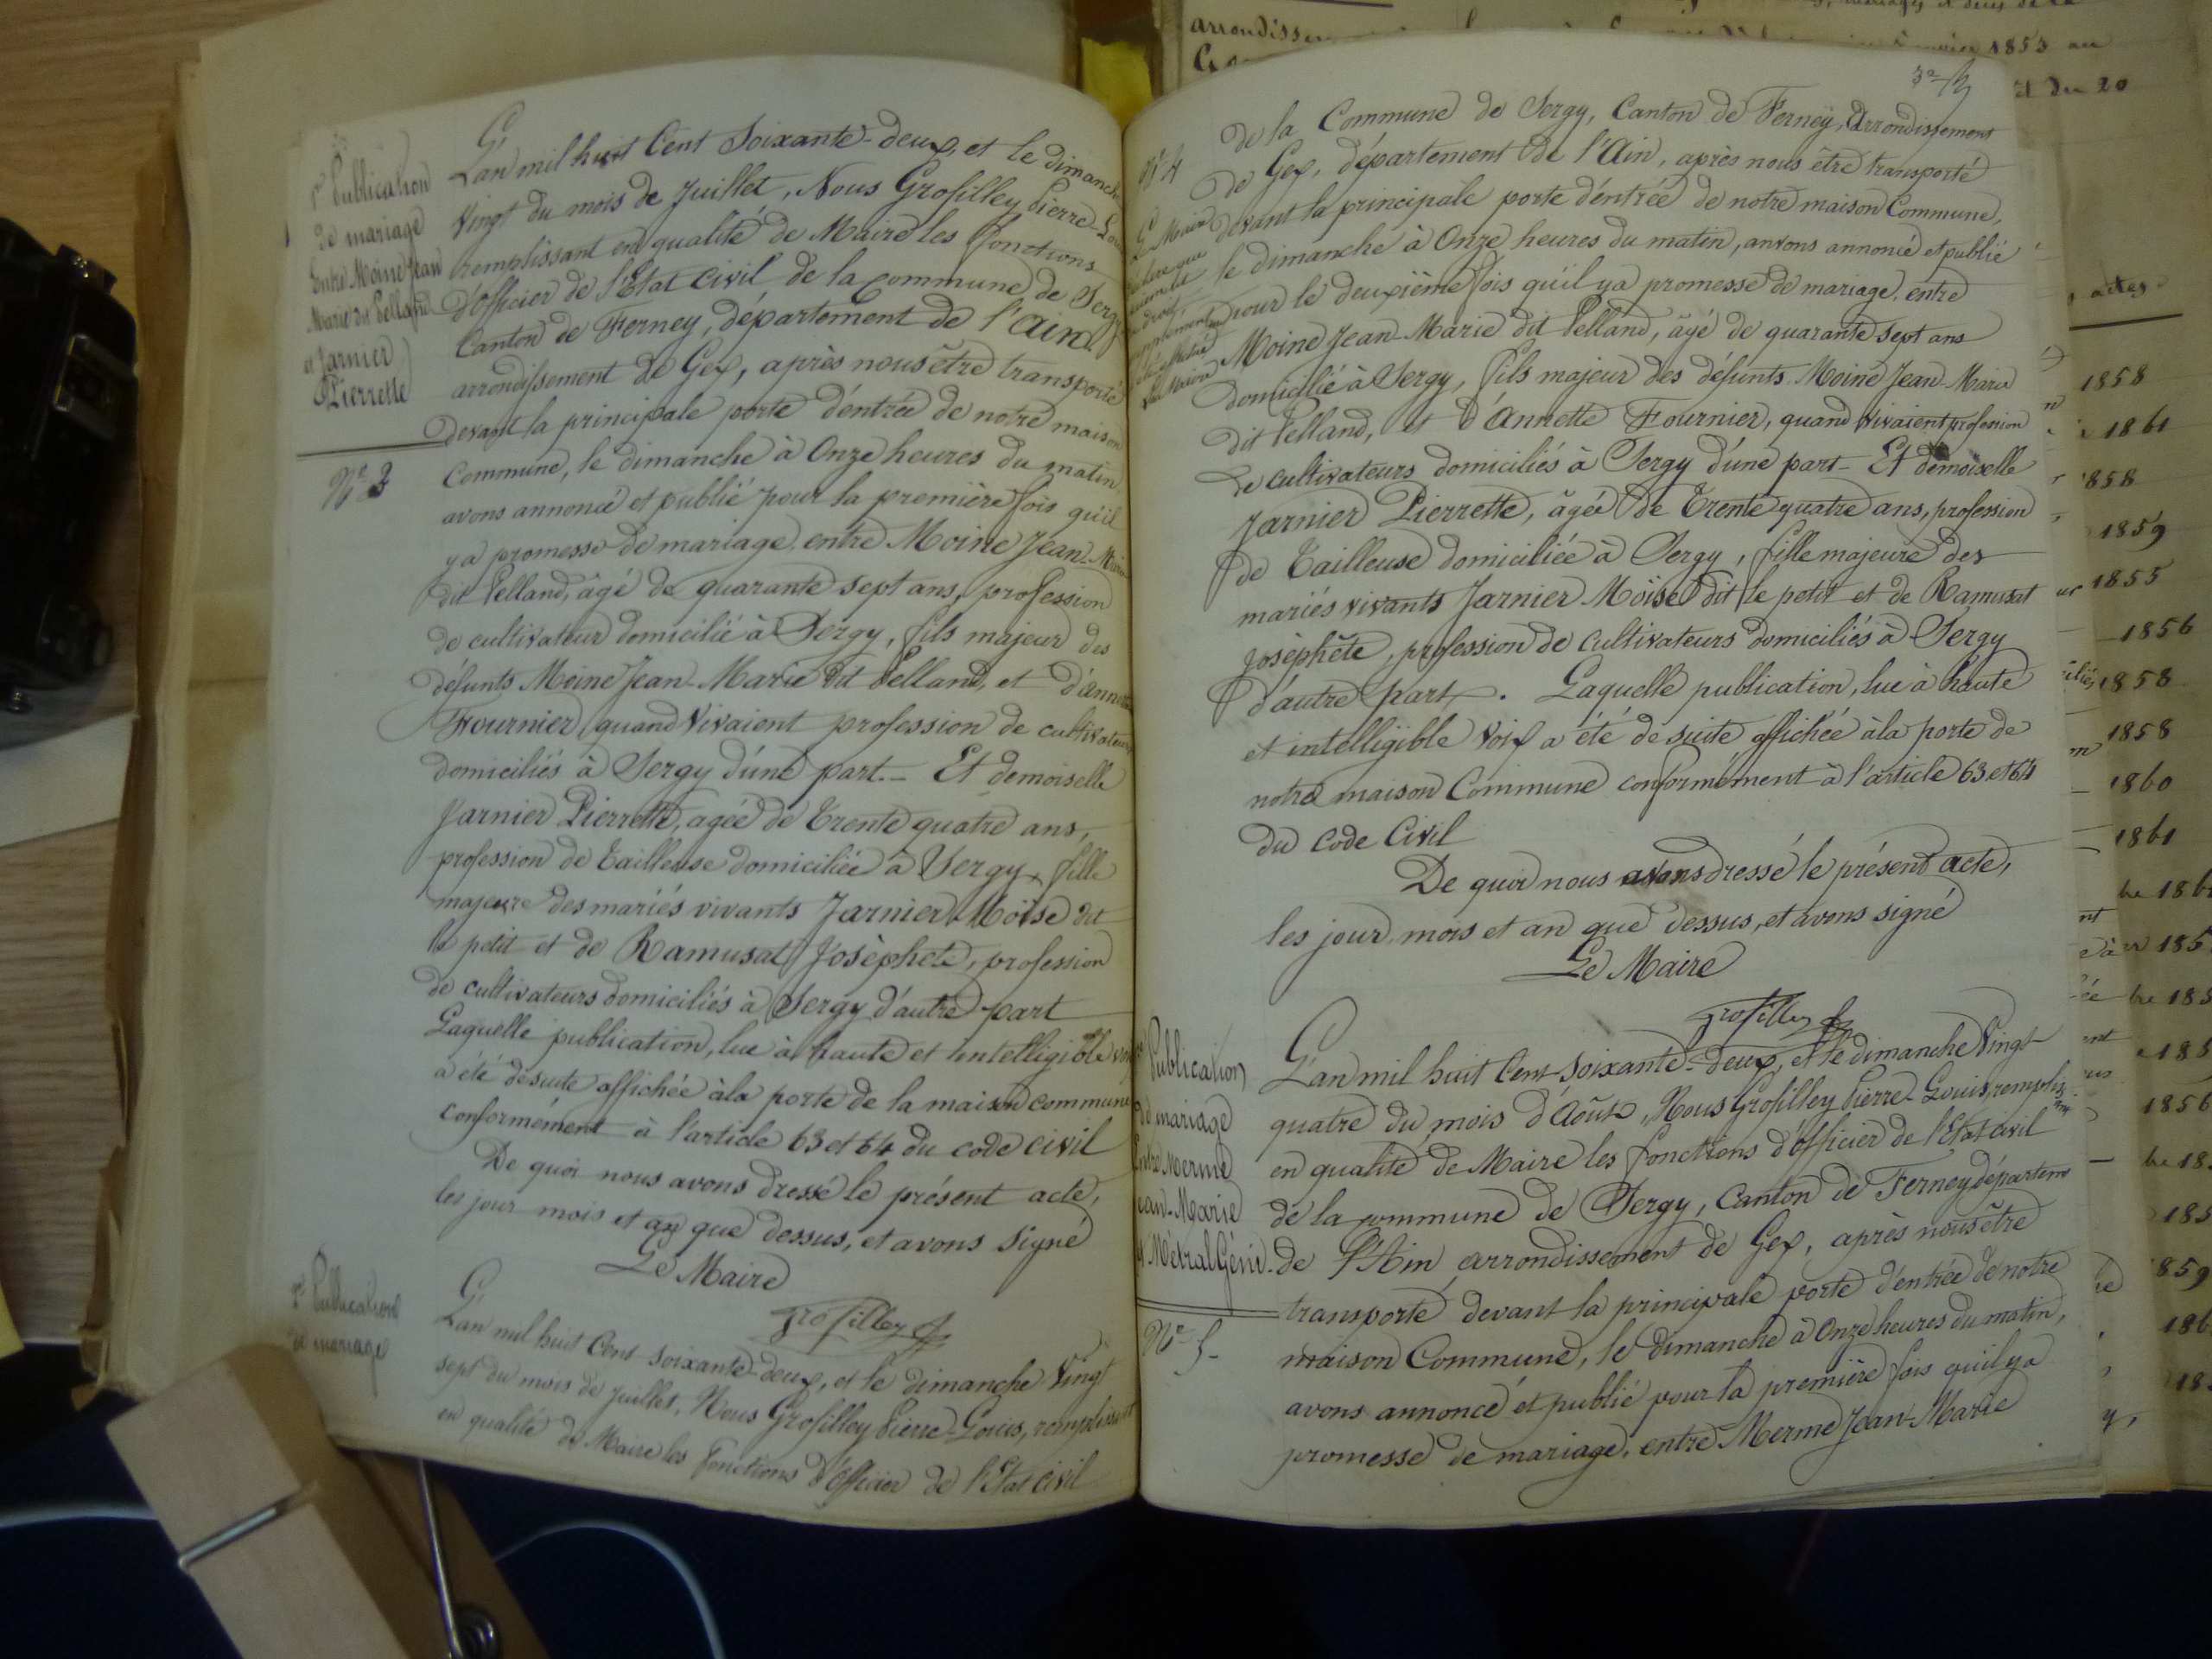 1re Publication
de mariage
Entre Moine Jean
Marie dit Pelland
et Jarnier
Pierrette
No 3
L'an mil huit Cent Soixante-deux, et le dimanche
vingt du mois de Juillet, Nous Grosfilley Pierre-Louis
remplissant en qualité de Maire les fonctions
d'officier de l'Etat Civil de la commune de Sergy
Canton de Ferney, département de l'Ain
arrondissement de Gex, après nous être transporté
devant la principale porte d'entrée de notre maison
Commune, le dimanche à Onze heures du matin
avons annoncé et publié pour la première fois qu'il
y a promesse de mariage, entre Moine Jean-Marie
dit Pelland, âgé de quarante sept ans, profession
de cultivateur domicilié à Sergy, fils majeur des
défunts Moine Jean-Marie dit Pelland, et d'Annette
Fournier, quand vivaient profession de cultivateurs
domiciliés à Sergy d'une part. - Et demoiselle
Jarnier Pierrette, agée de Trente quatre ans,
profession de Tailleuse domiciliée à Sergy, fille
majeure des mariés vivants Jarnier Moïse dit
le petit et de Ramusat Josèphete, profession
de cultivateurs domiciliés à Sergy d'autre part
Laquelle publication, lue à haute et intelligible voix
a été de suite affichée à la porte de la maison commune
conformément à l'article 63 et 64 du code civil
De quoi nous avons dressé le présent acte,
les jour mois et an que dessus, et avons signé
Le Maire
Grosfilley
2e Publication
de mariage
L'an mil huit Cent soixante-deux, et le dimanche Vingt
sept du mois de Juillet, Nous Grosfilley Pierre-Louis, remplissant
en qualité de Maire les fonctions d'Officier de l'Etat civil
No 4
Le Maire
de la Commune de Sergy, Canton de Ferney, Arrondissement
de Gex, département de l'Ain, après nous être transporté
devant la principale porte d'entrée de notre maison Commune,
le dimanche à Onze heures du matin, avons annoncé et publié
pour le deuxième fois qu'il y a promesse de mariage, entre
Moine Jean-Marie dit Pelland, âgé de quarante sept ans
domicilié à Sergy, fils majeur des défunts Moine Jean-Marie
dit Pelland, et d'Annette Fournier, quand vivaient profession
de cultivateurs domiciliés à Sergy d'une part - Et demoiselle
Jarnier Pierrette, âgée de Trente quatre ans, profession
de Tailleuse domiciliée à Sergy, fille majeure des
mariés vivants Jarnier Moïse dit le petit et de Ramusat
Josèphete, profession de Cultivateurs domiciliés à Sergy
d'autre part. Laquelle publication, lue à haute
et intelligible voix a été de suite affichée à la porte de
notre maison Commune conformément à l'article 63 et 64
du Code Civil
De quoi nous avons dressé le présent acte,
les jour mois et an que dessus, et avons signé
Le Maire
Grosfilley
Publication
de mariage
Entre Merme
Jean-Marie
et Métral Géni-
No 5-
L'an mil huit Cent Soixante-deux, et le dimanche Vingt-
quatre du mois d'Août, Nous Grosfilley Pierre-Louis, remplis-
sant
en qualité de Maire les fonctions d'officier de l'Etat civil
de la commune de Sergy, Canton de Ferney départem
de l'Ain arrondissement de Gex, après nous être
transporté devant la principale porte d'entrée de notre
maison Commune, le dimanche à Onze heures du matin,
avons annoncé et publié pour la première fois qu'il y a
promesse de mariage, entre Merme Jean-Marie
1853 au
et du 20
actes
1858
1861
1858
1859
1855
1856
1858
1858
1860
1861
1856